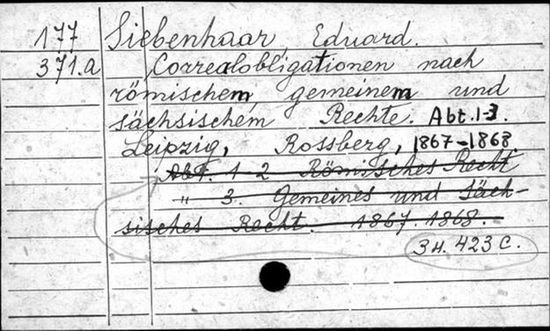 177 Siebenhaar, Eduard.
371.a Correalobligationen nach
römischem, gemeinem und
sächsischem Rechte. Abt. 1-3.
Leipzig, Rossberg, 1867-1868
Abt. 1-2 Römisches Recht
" 3. Gemeines und Säch-
sisches Recht. 1867. 1868.
34. 423 C.